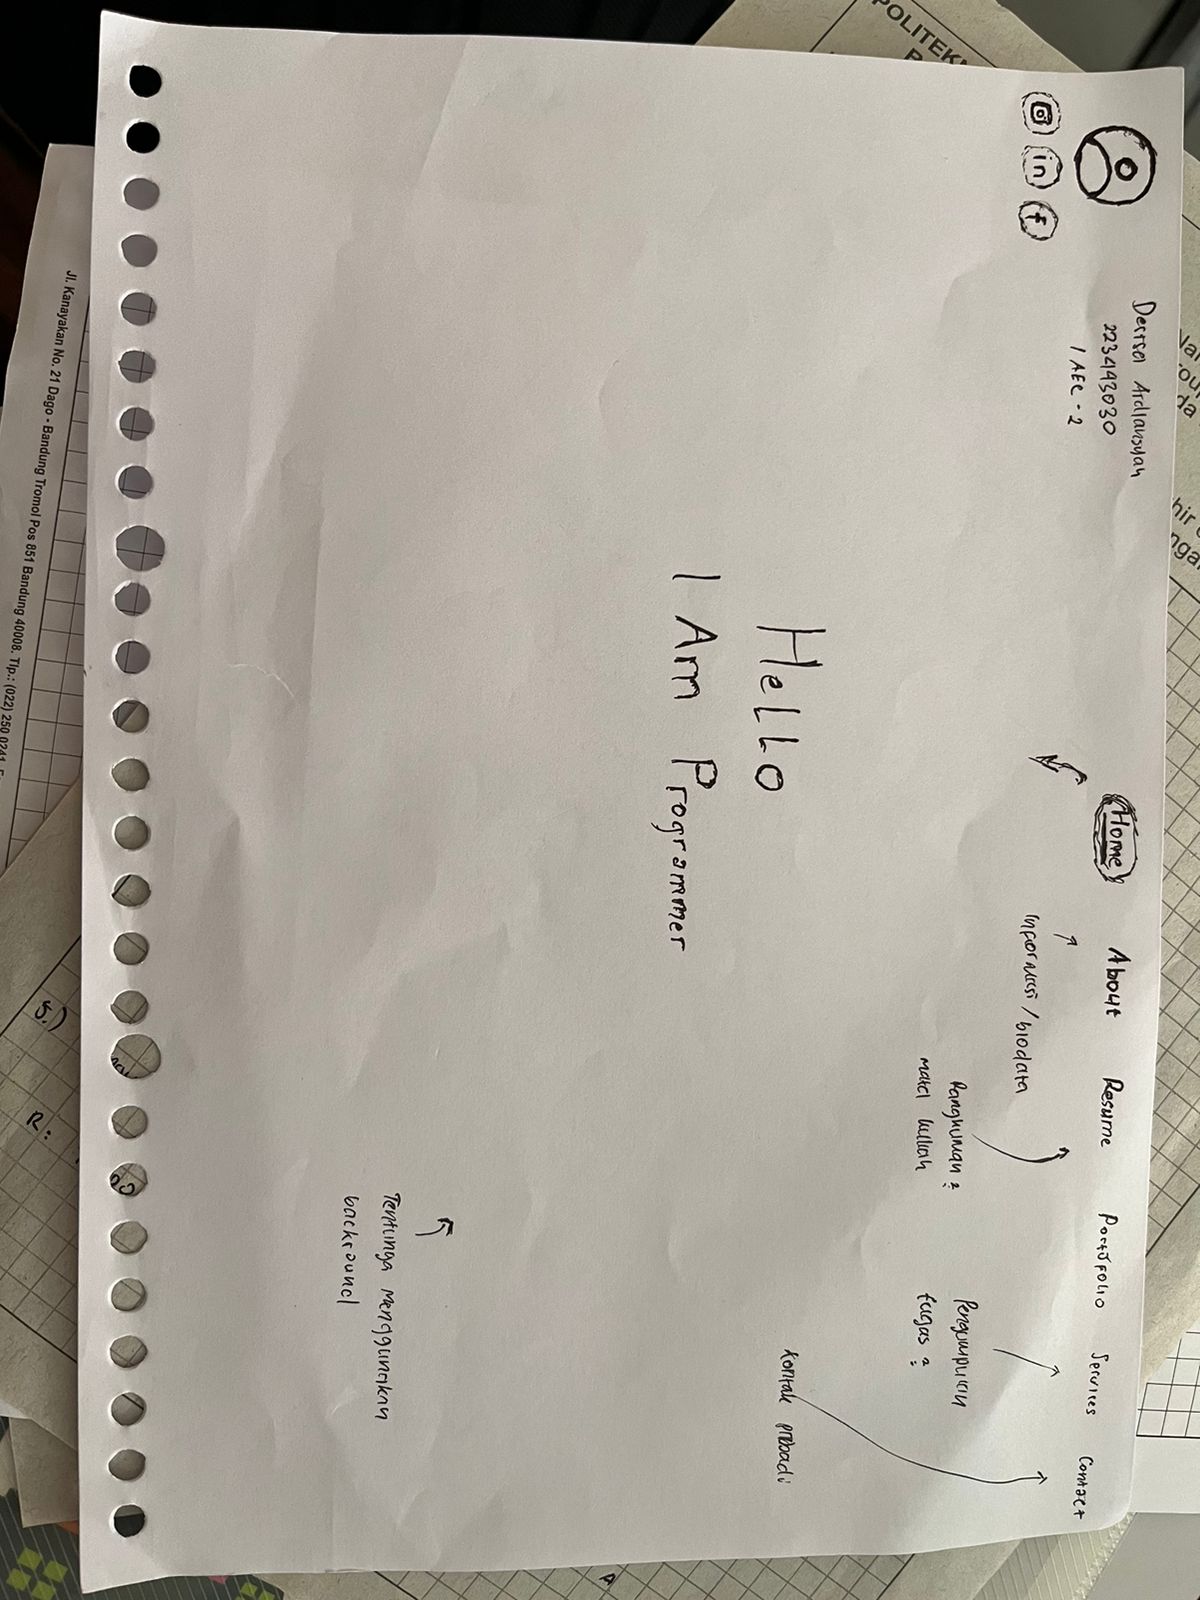 Derrsel Ardiansyah
223443030
1 AEC - 2
in f
Home About Resume Portofolio Services Contact
Informasi / biodata
Rangkuman ?
matel kuliah
Pengumpulan
tugas ?
Kontak pribadi
Hello
I Am Programmer
Tentunga menggunakan
background
POLITEKN
Jl. Kanayakan No. 21 Dago - Bandung Tromol Pos 851 Bandung 40008. Tlp.: (022) 250 0241
5.)
R:
A